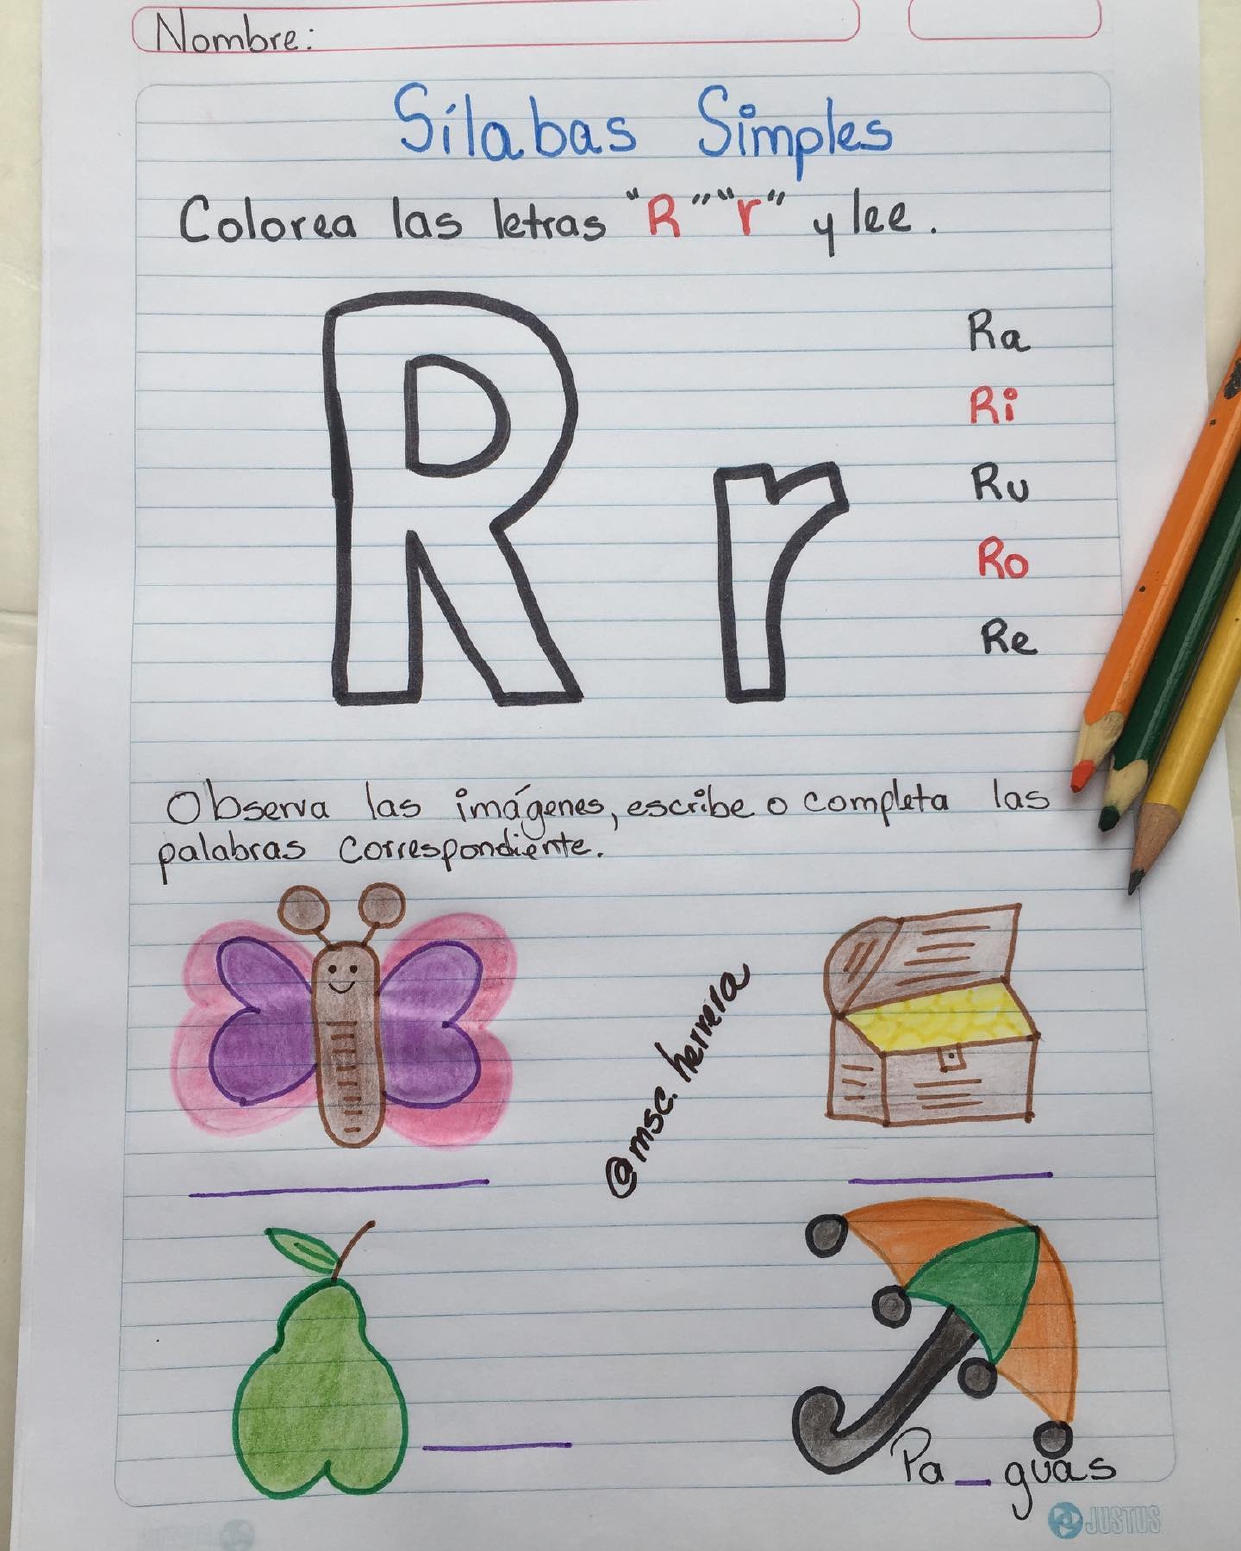 Nombre:
Sílabas Simples
Colorea las letras "R" "r" y lee.
R r
Ra
Ri
Ru
Ro
Re
Observa las imágenes, escribe o completa las
palabras correspondiente.
@msc. herrera
Pa_guas
JUSTUS